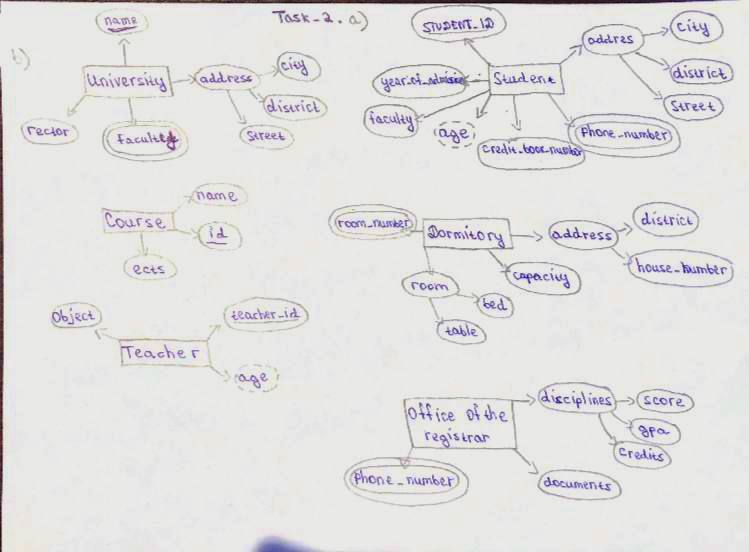 Task_2. a)
b)
name
University
address
city
district
street
rector
faculty
STUDENT_ID
Student
addres
city
district
street
faculty
age
credit_book_number
phone_number
Course
name
id
ects
room_number
Dormitory
address
district
house_number
room
capacity
bed
table
Object
Teacher
teacher_id
age
Office of the
registrar
disciplines
score
gpa
credits
phone_number
documents